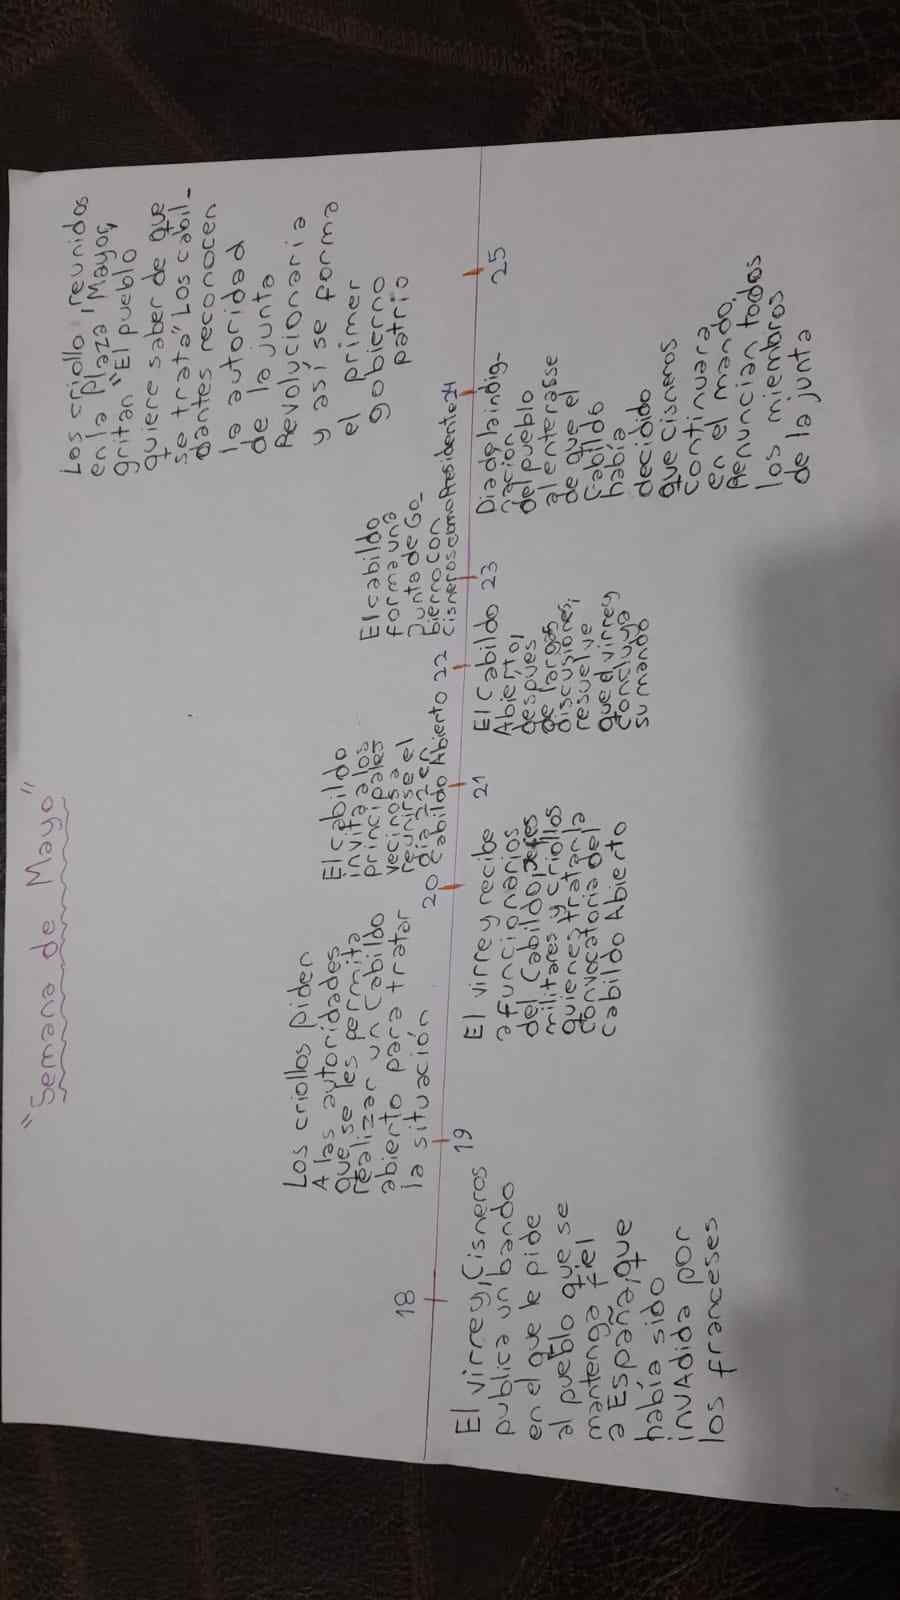 "Semana de Mayo"
18
El virrey, Cisneros
publica un bando
en el que le pide
al pueblo que se
mantenga fiel
a España, que
había sido
invAdida por
los franceses
Los criollos piden
A las autoridades
que se les permita
realizar un Cabildo
abierto para tratar
la situación
19
El virrey recibe
a funcionarios
del Cabildo, jefes
militares y criollos
quienes tratan la
convocatoria del
Cabildo Abierto
20
El cabildo
invita a los
principales
vecinos a
reunirse el
día 22 en
Cabildo Abierto
21
El Cabildo
Abierto,
despues
de largas
discusiones,
resuelve
que el virrey
concluya
su mando
22
El cabildo
forma una
Junta de Go-
bierno con
Cisneros como Presidente
23
Dia de la indig-
nación
del pueblo
al enterarse
de que el
Cabildo
había
decidido
que Cisneros
continuara
en el mando.
Renuncian todos
los miembros
de la junta
24
Los criollo reunidos
en la plaza Mayor,
gritan "El pueblo
quiere saber de que
se trata" Los cabil-
dantes reconocen
la autoridad
de la junta
Revolucionaria
y así se forma
el primer
gobierno
patrio
25